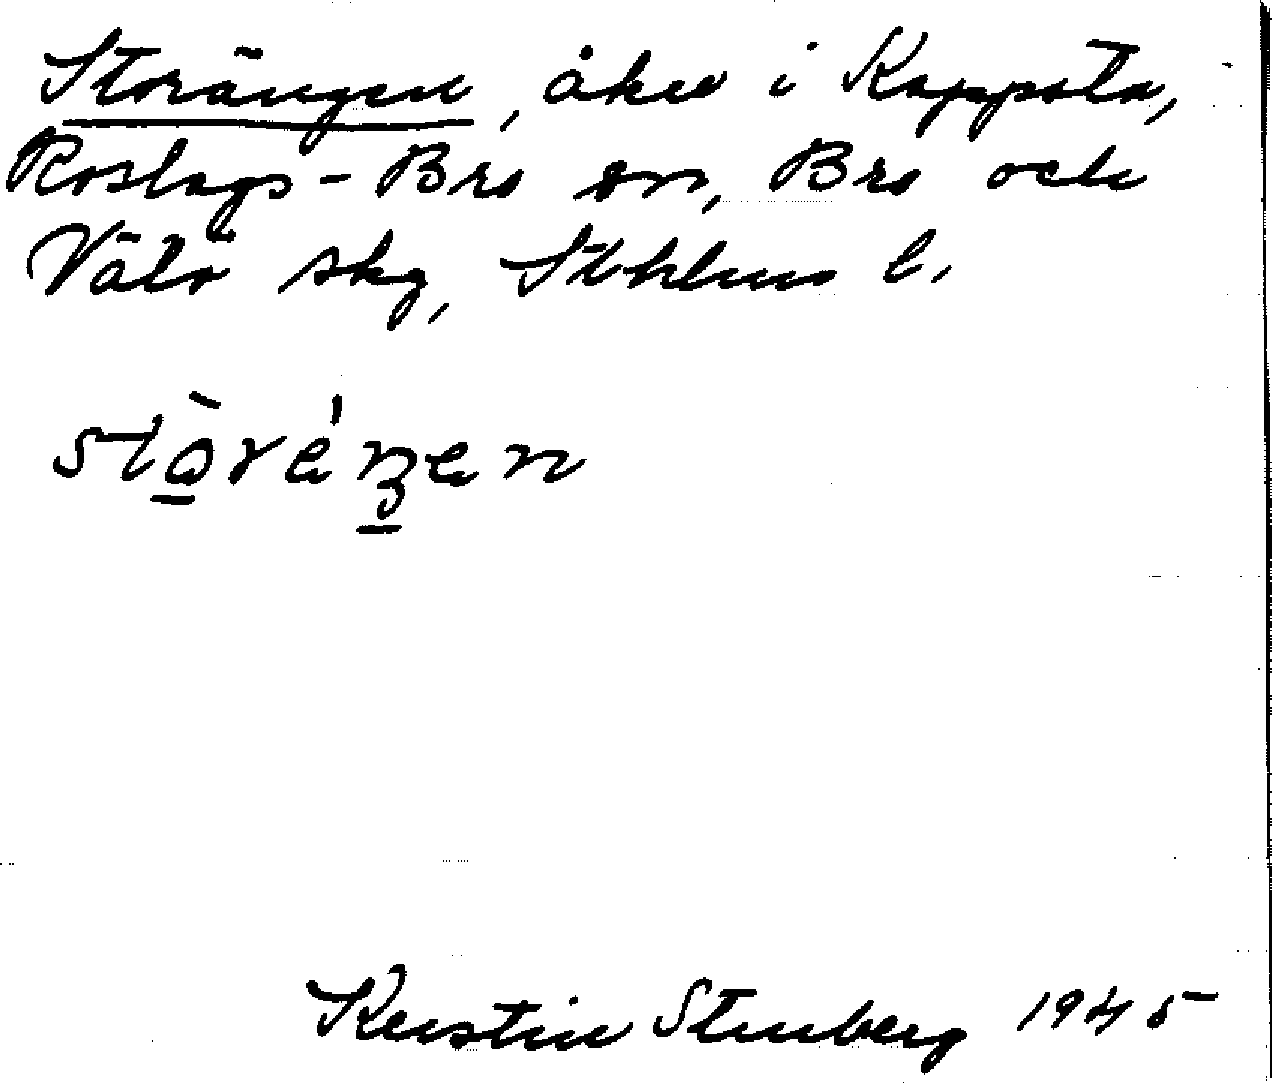 Storängen, åker i Kappsta,
Roslags-Bro sn, Bro och
Vätö skg, Sthlms l.
stò̱réŋ̱en
Kerstin Stenberg 1945